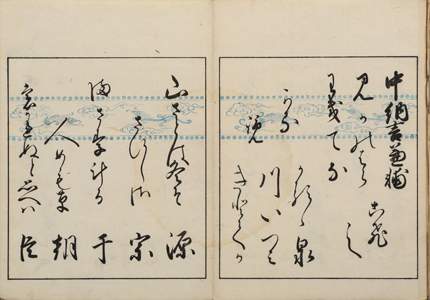 中納言兼輔
見かの八ら
わきてな
かるゝ泉
川いつみ
きとてか
こ飛
し
かる
覧
山さとは冬そ
さひしさ
満さ里計る
人めも草
もかれぬと思へハ
源
宗
于
朝
臣